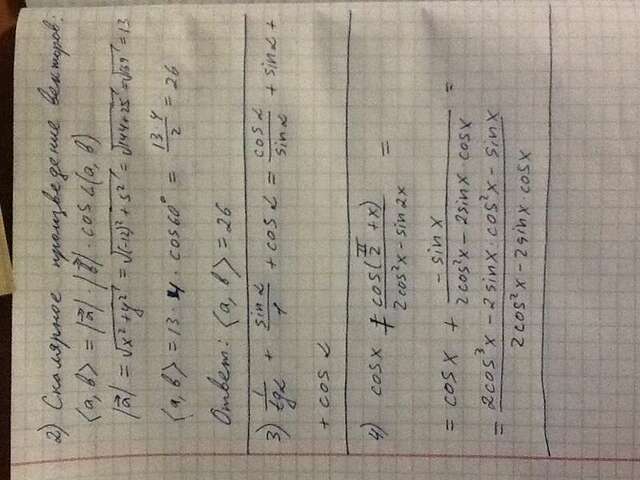 2) Скалярное произведение векторов:
⟨a, b⟩ = |a⃗| · |b⃗| · cos∠(a, b)
|a⃗| = √(x² + y²) = √((-12)² + 5²) = √(144 + 25) = √169 = 13
⟨a, b⟩ = 13 · 4 · cos60° = (13 · 4)/2 = 26
Ответ: ⟨a, b⟩ = 26
3) 1/tgα + sinα/1 + cosα = cosα/sinα + sinα +
+ cosα
4) cosx + cos(π/2 + x)/(2cos²x - sin2x) =
= cosx + (-sinx)/(2cos²x - 2sinx · cosx) =
= (2cos³x - 2sinx · cos²x - sinx)/(2cos²x - 2sinx cosx)